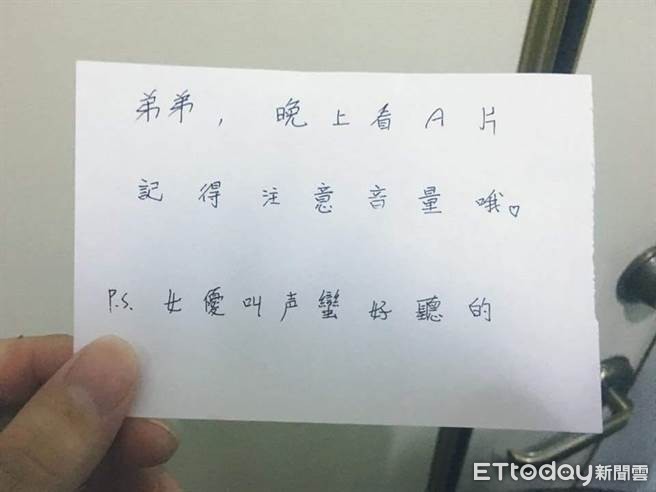 弟弟，晚上看A片
記得注意音量哦♡
P.S. 女優叫声蠻好聽的
ETtoday新聞雲